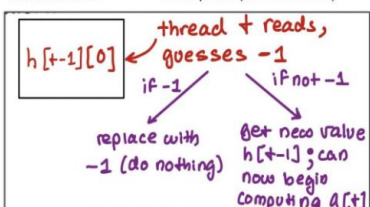 thread t reads,
guesses -1
h[t-1][0]
if -1
if not -1
replace with
-1 (do nothing)
get new value
h[t-1]; can
now begin
computing a[t]